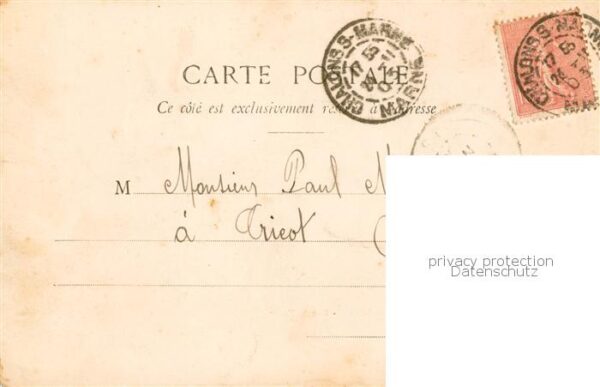 CARTE POSTALE
Ce côté est exclusivement réservé à l'adresse
CHALONS S-MARNE
MARNE
CHALONS S-MARNE
M Monsieur Paul
à Tricot (
privacy protection
Datenschutz